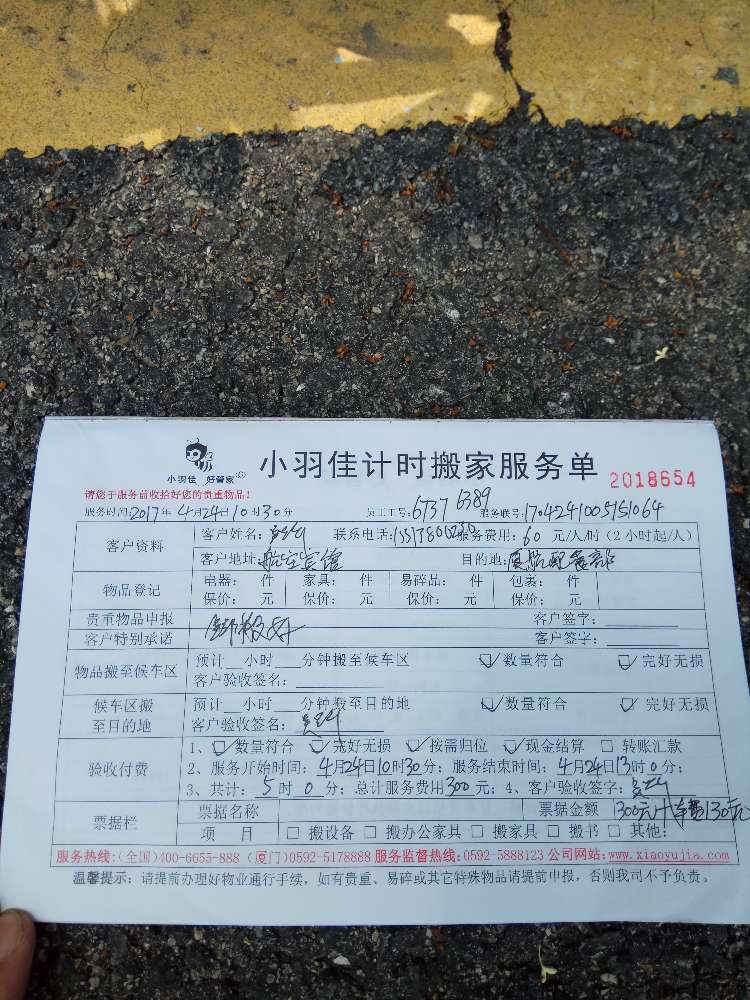 小羽佳 好管家
小羽佳计时搬家服务单 2018654
请您于服务前收拾好您的贵重物品！
服务时间：2017年4月24日10时30分 员工工号：6737 6389 服务联号：1704241005151064
客户资料 客户姓名： 联系电话： 服务费用：60元/人/时（2小时起/人）
客户地址：航空宾馆 目的地：厦航配餐部
物品登记 电器： 件 家具： 件 易碎品： 件 包裹： 件
保价： 元 保价： 元 保价： 元 保价： 元
贵重物品申报 客户签字：
客户特别承诺 客户签字：
物品搬至候车区 预计__小时___分钟搬至候车区 ☑数量符合 ☑完好无损
客户验收签名：
候车区搬至目的地 预计__小时___分钟搬至目的地 ☑数量符合 ☑完好无损
客户验收签名：
验收付费 1、☑数量符合 ☑完好无损 ☑按需归位 ☑现金结算 □转账汇款
2、服务开始时间：4月24日10时30分；服务结束时间：4月24日13时0分；
3、共计：5时0分；总计服务费用300元；4、客户验收签字：
票据栏 票据名称 票据金额 300元+车费130元
项目 □搬设备 □搬办公家具 □搬家具 □搬书 □其他：
服务热线：(全国)400-6655-888 (厦门)0592-5178888 服务监督热线：0592-5888123 公司网站：www.xiaoyujia.com
温馨提示：请提前办理好物业通行手续，如有贵重、易碎或其它特殊物品请提前申报，否则我司不予负责。